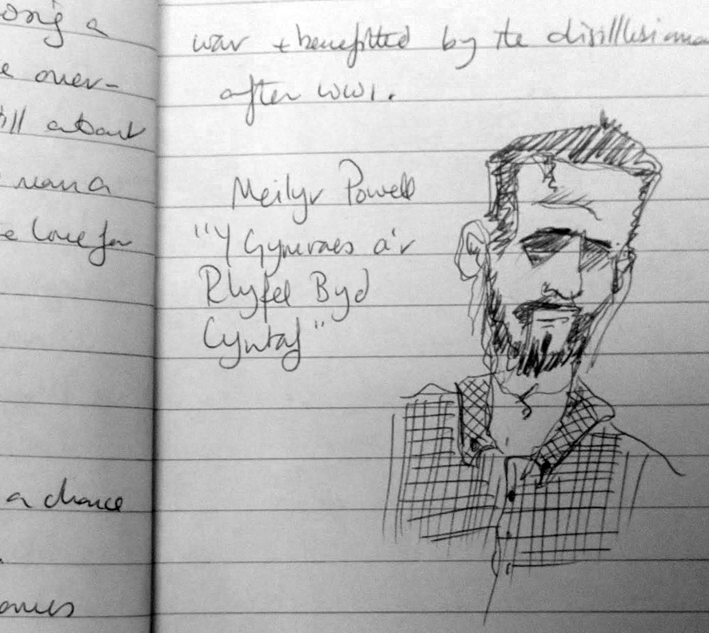 e over-
ill about
e love for
a chance
war + benefitted by the
after WW1.
Meilyr Powell
"Y Gymraes a'r
Rhyfel Byd
Cyntaf"